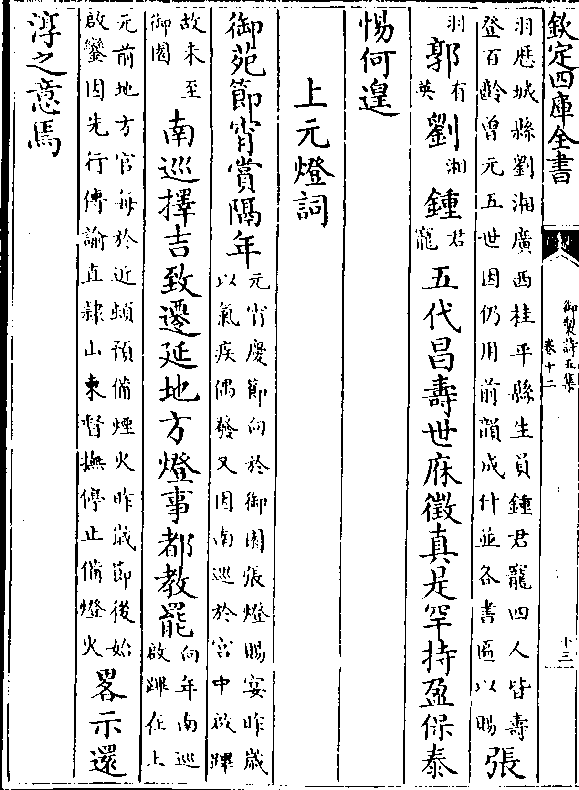 欽定四庫全書
御製詩五集
卷十二
十三
羽歷城縣劉湘廣西桂平縣生員鍾君寵四人皆壽
登百齡曾元五世因仍用前韻成什並各書匾以賜
張
羽
郭
有
英
劉
湘
鍾
君
寵
五代昌壽世庥徵真是罕持盈保泰
惕何遑
上元燈詞
御苑節宵賞隔年
元宵慶節向於御園張燈賜宴昨歲
以氣疾偶發又因南巡於宮中啟蹕
故未至
御園
南巡擇吉致遷延地方燈事都教罷
向年南巡
啟蹕在上
元前地方官每於近頓預備煙火昨歲節後始
啟鑾因先行傳諭直隸山東督撫停止備燈火
畧示還
淳之意焉